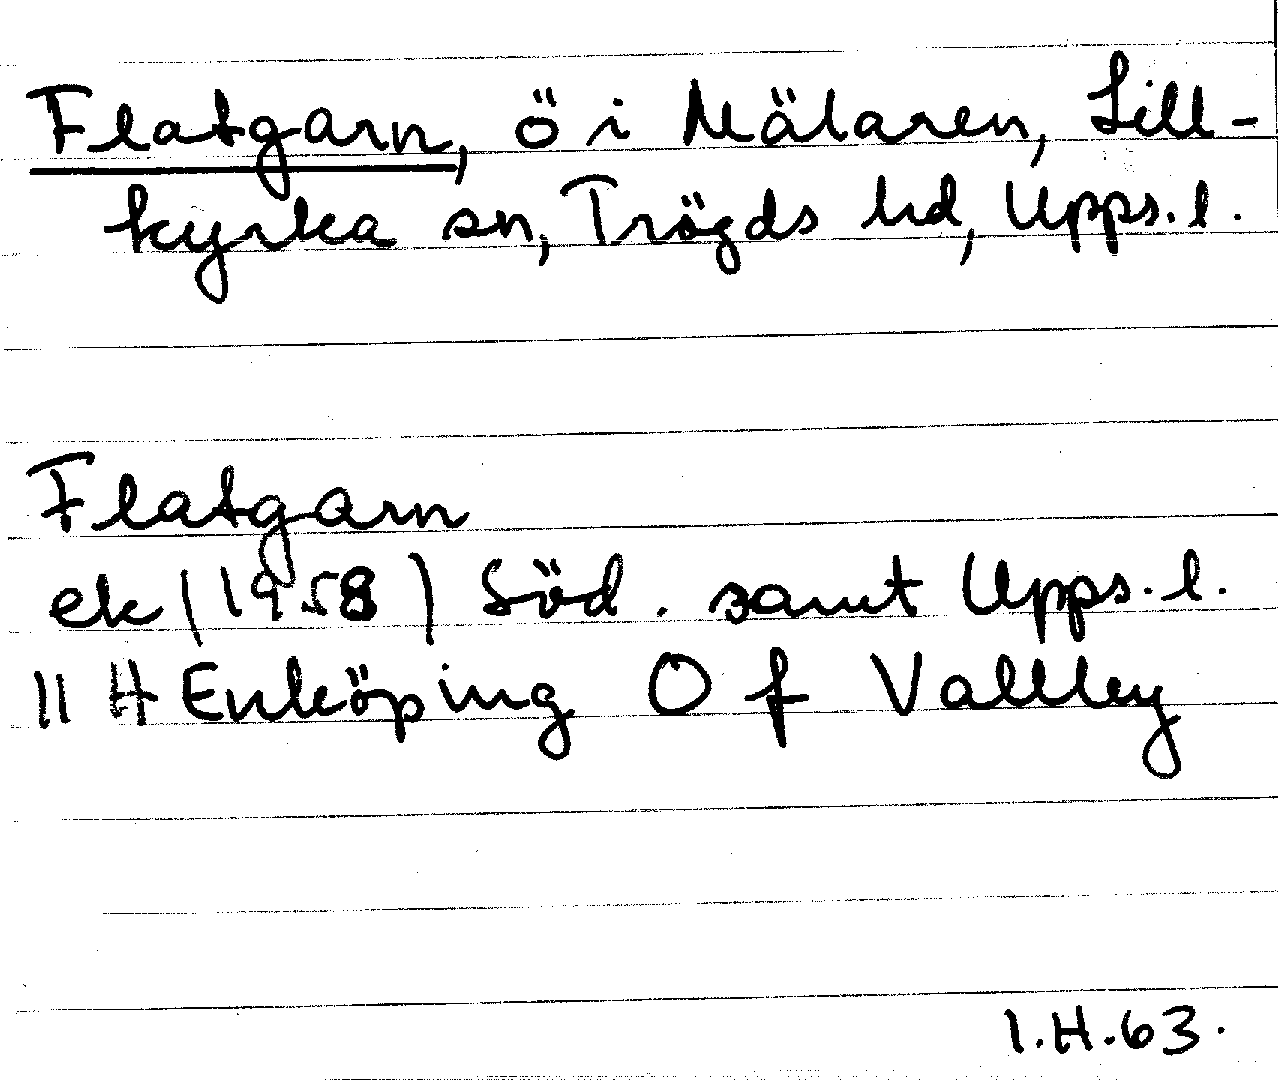 Flatgarn, ö i Mälaren, Lill-
kyrka sn, Trögds hd, Upps. l.
Flatgarn
ek (1958) Söd. samt Upps. l.
11 H Enköping O f Vallby
I.H.63.